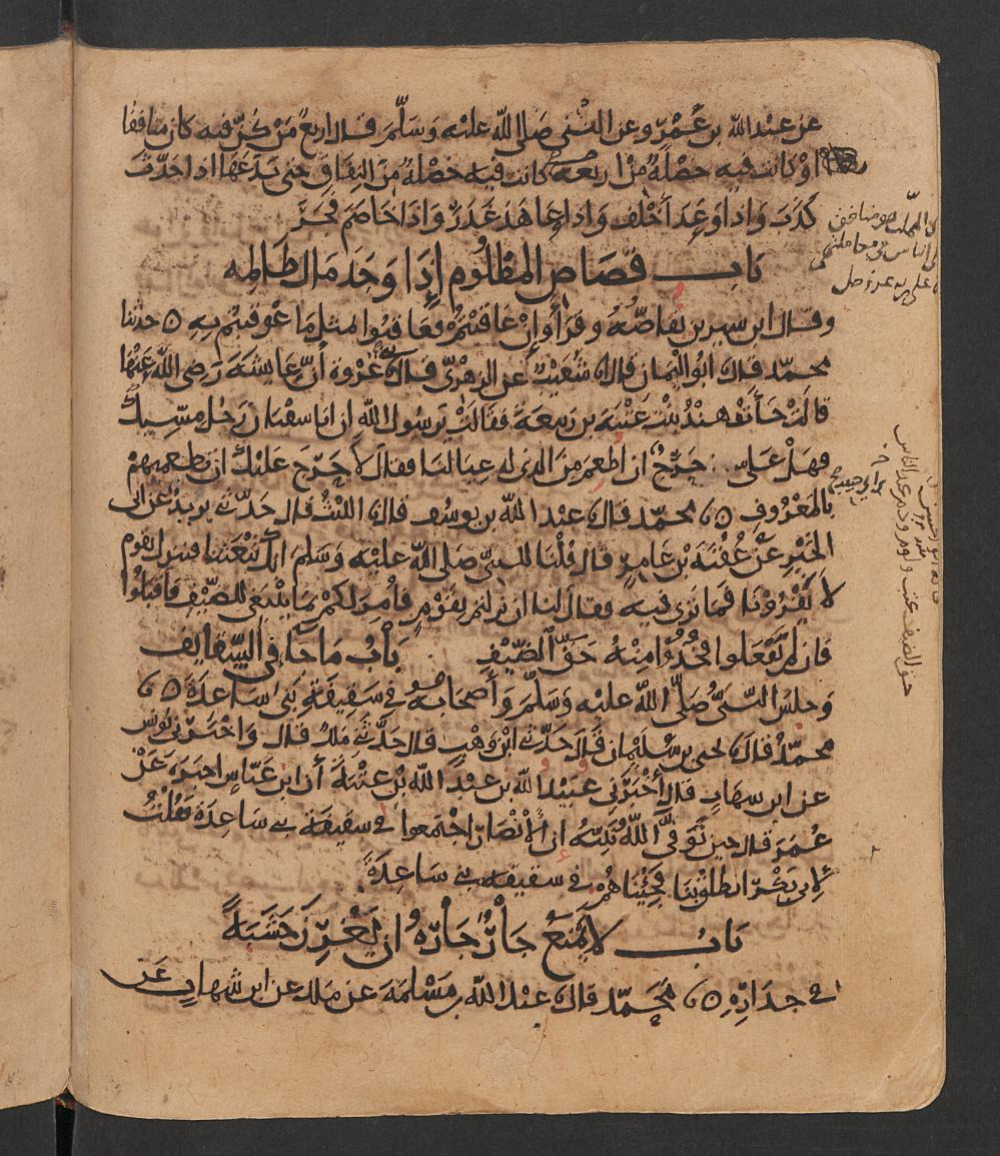 عن عبد الله بن عمرو عن النبي صلى الله عليه وسلم قال اربع من كن فيه كان منافقا
او كانت فيه خصلة من اربعة كانت فيه خصلة من النفاق حتى يدعها اذا حدث
كذب واذا وعد أخلف واذا عاهد غدر واذا خاصم فجر
باب قصاص المظلوم إذا وجد مال ظالمه
وقال ابن سيرين يقاصه وقرأ وإن عاقبتم فعاقبوا بمثل ما عوقبتم به ه حدثنا
محمد قال ابو اليمان قال شعيب عن الزهري قال عروة أن عايشة رضي الله عنها
قالت جأت هند بنت عتبة بن ربيعة فقالت يرسول الله ان ابا سفيان رجل مسيك
فهل علي حرج ان اطعم من الذي له عيالنا فقال لا حرج عليك ان تطعميهم
بالمعروف ه محمد قال عبد الله بن يوسف قال الليث قال حدثني يزيد عن ابي
الخير عن عقبة بن عامر قال قلنا للنبي صلى الله عليه وسلم انك تبعثنا فننزل بقوم
لا يقرونا فما ترى فيه فقال لنا ان نزلتم بقوم فأمر لكم بما ينبغي للضيف فاقبلوا
فان لم يفعلوا فخذوا منه حق الضيف باب ما جا في السقايف
وجلس النبي صلى الله عليه وسلم وأصحابه في سقيفة بني ساعدة ه
محمد قال يحيى بن سليمان قال حدثني ابن وهب قال حدثني ملك قال واخبرني يونس
عن ابن شهاب قال أخبرني عبيد الله بن عبد الله بن عتبة أن ابن عباس اخبره عن
عمر قال حين توفى الله نبيه ان الأنصار اجتمعوا في سقيفة بني ساعدة فقلت
لابي بكر انطلق بنا فجئناهم في سقيفة بني ساعدة
باب لا يمنع جار جاره ان يغرز خشبة
في جداره ه محمد قال عبد الله بن مسلمة عن ملك عن ابن شهاب عن